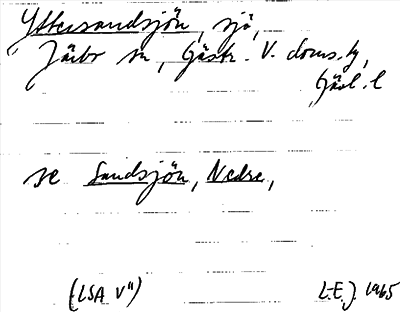 Yttersandsjön, sjö,
Järbo sn, Gästr. V. doms. hg,
Gävl. l
se Sandsjön, Nedre,
(LSA V")
L.E.J. 1965